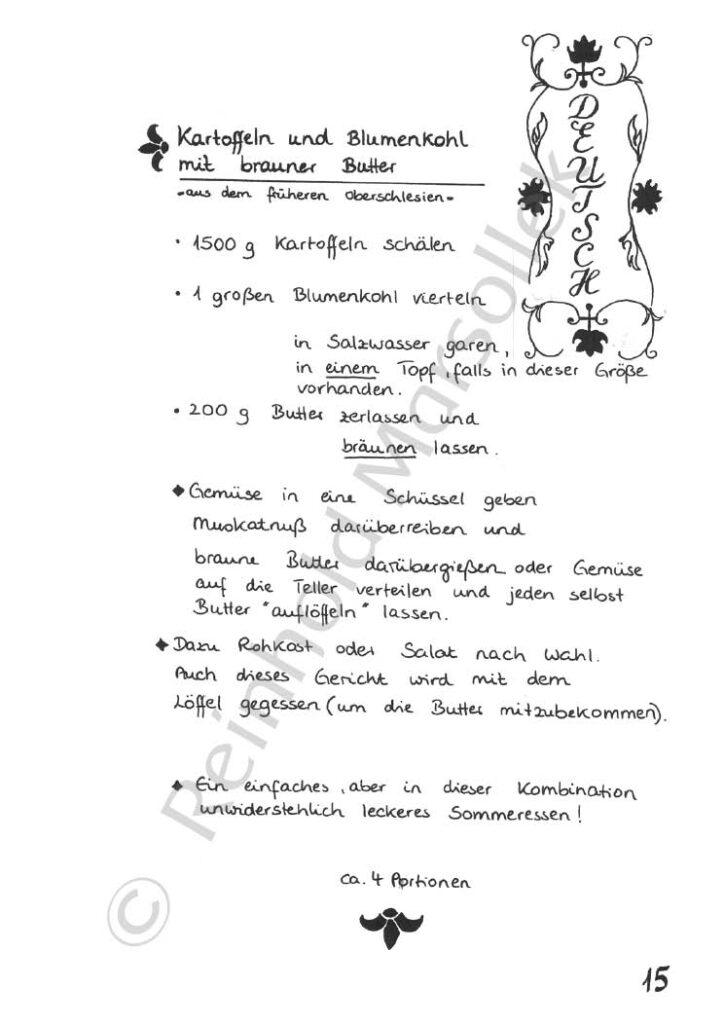 DEUTSCH
Kartoffeln und Blumenkohl
mit brauner Butter
-aus dem früheren Oberschlesien-
• 1500 g Kartoffeln schälen
• 1 großen Blumenkohl vierteln
in Salzwasser garen,
in einem Topf, falls in dieser Größe
vorhanden.
• 200 g Butter zerlassen und
bräunen lassen.
◆ Gemüse in eine Schüssel geben
Muskatnuß darüberreiben und
braune Butter darübergießen oder Gemüse
auf die Teller verteilen und jeden selbst
Butter "auflöffeln" lassen.
◆ Dazu Rohkost oder Salat nach Wahl.
Auch dieses Gericht wird mit dem
Löffel gegessen (um die Butter mitzubekommen).
◆ Ein einfaches, aber in dieser Kombination
unwiderstehlich leckeres Sommeressen!
ca. 4 Portionen
15
© Reinhold Marsollek